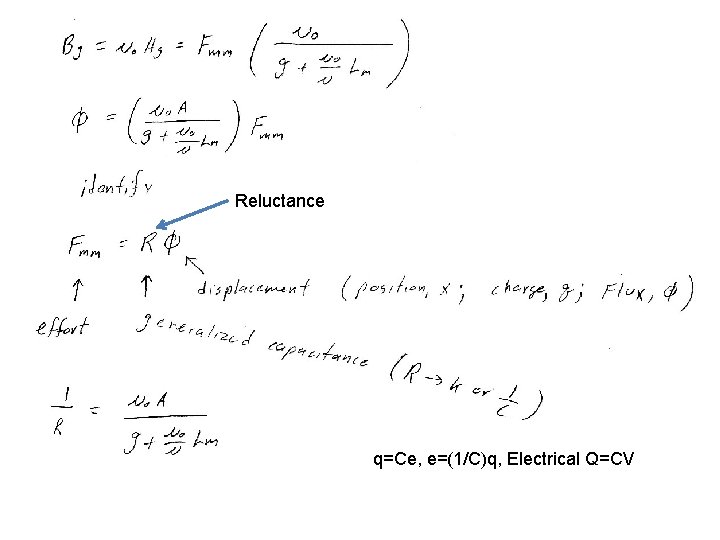 Bg = μ₀ Hg = Fmm ( μ₀ / (g + (μ₀/μ) Lm) )
ϕ = ( μ₀ A / (g + (μ₀/μ) Lm) ) Fmm
identify
Reluctance
Fmm = R ϕ
↑ ↑ displacement (position, x; charge, q; Flux, ϕ)
effort generalized capacitance (R → k or 1/C)
1/R = μ₀ A / (g + (μ₀/μ) Lm)
q=Ce, e=(1/C)q, Electrical Q=CV